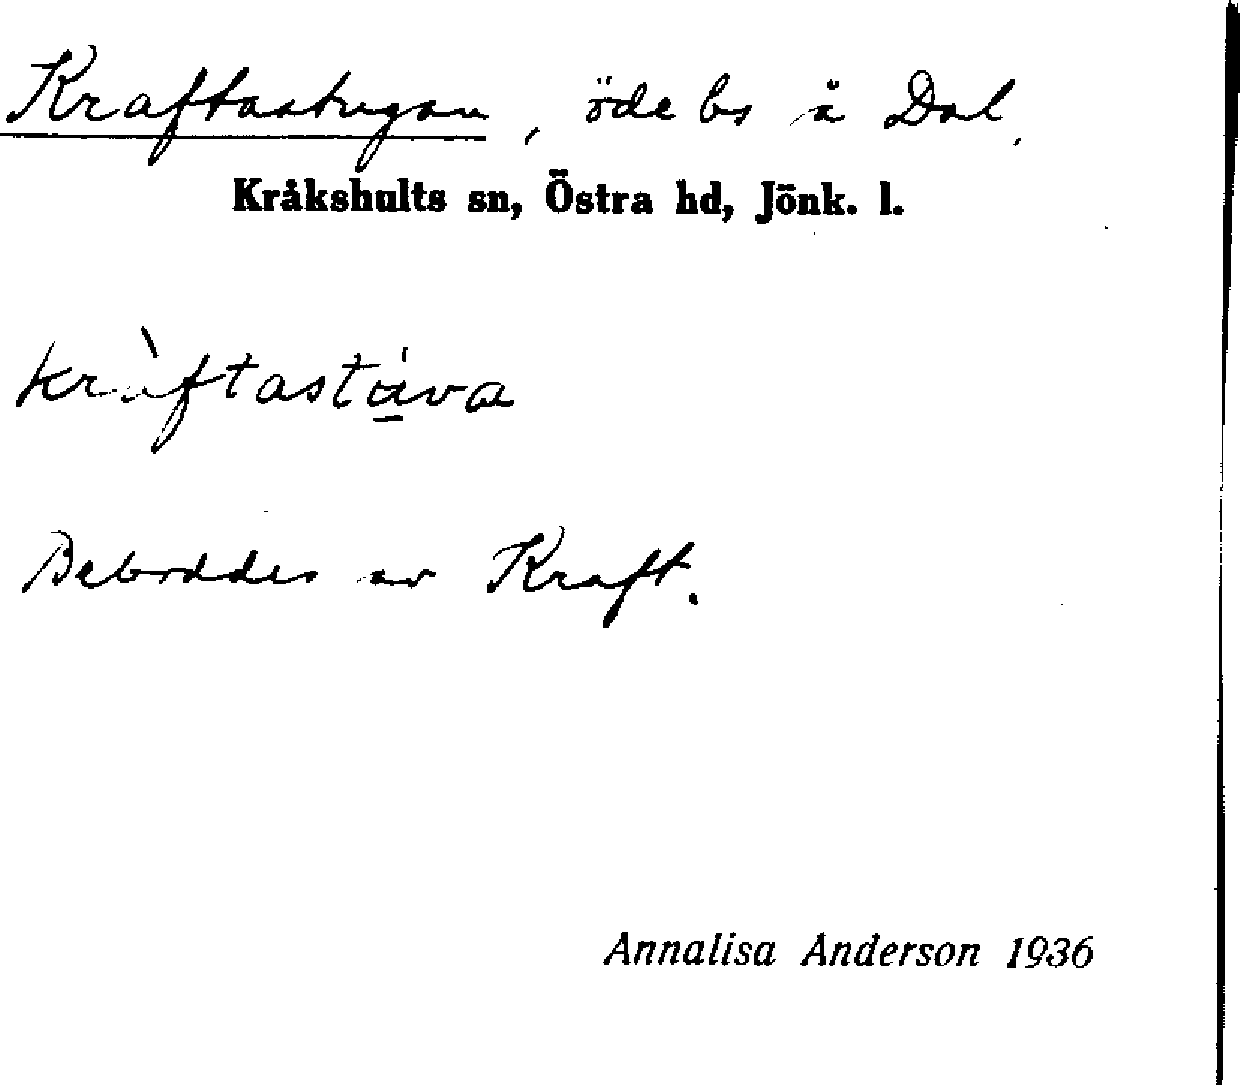 Kraftastugan, öde bs å Dal.
Kråkshults sn, Östra hd, Jönk. l.
kràftastáva
Beboddes av Kraft.
Annalisa Anderson 1936